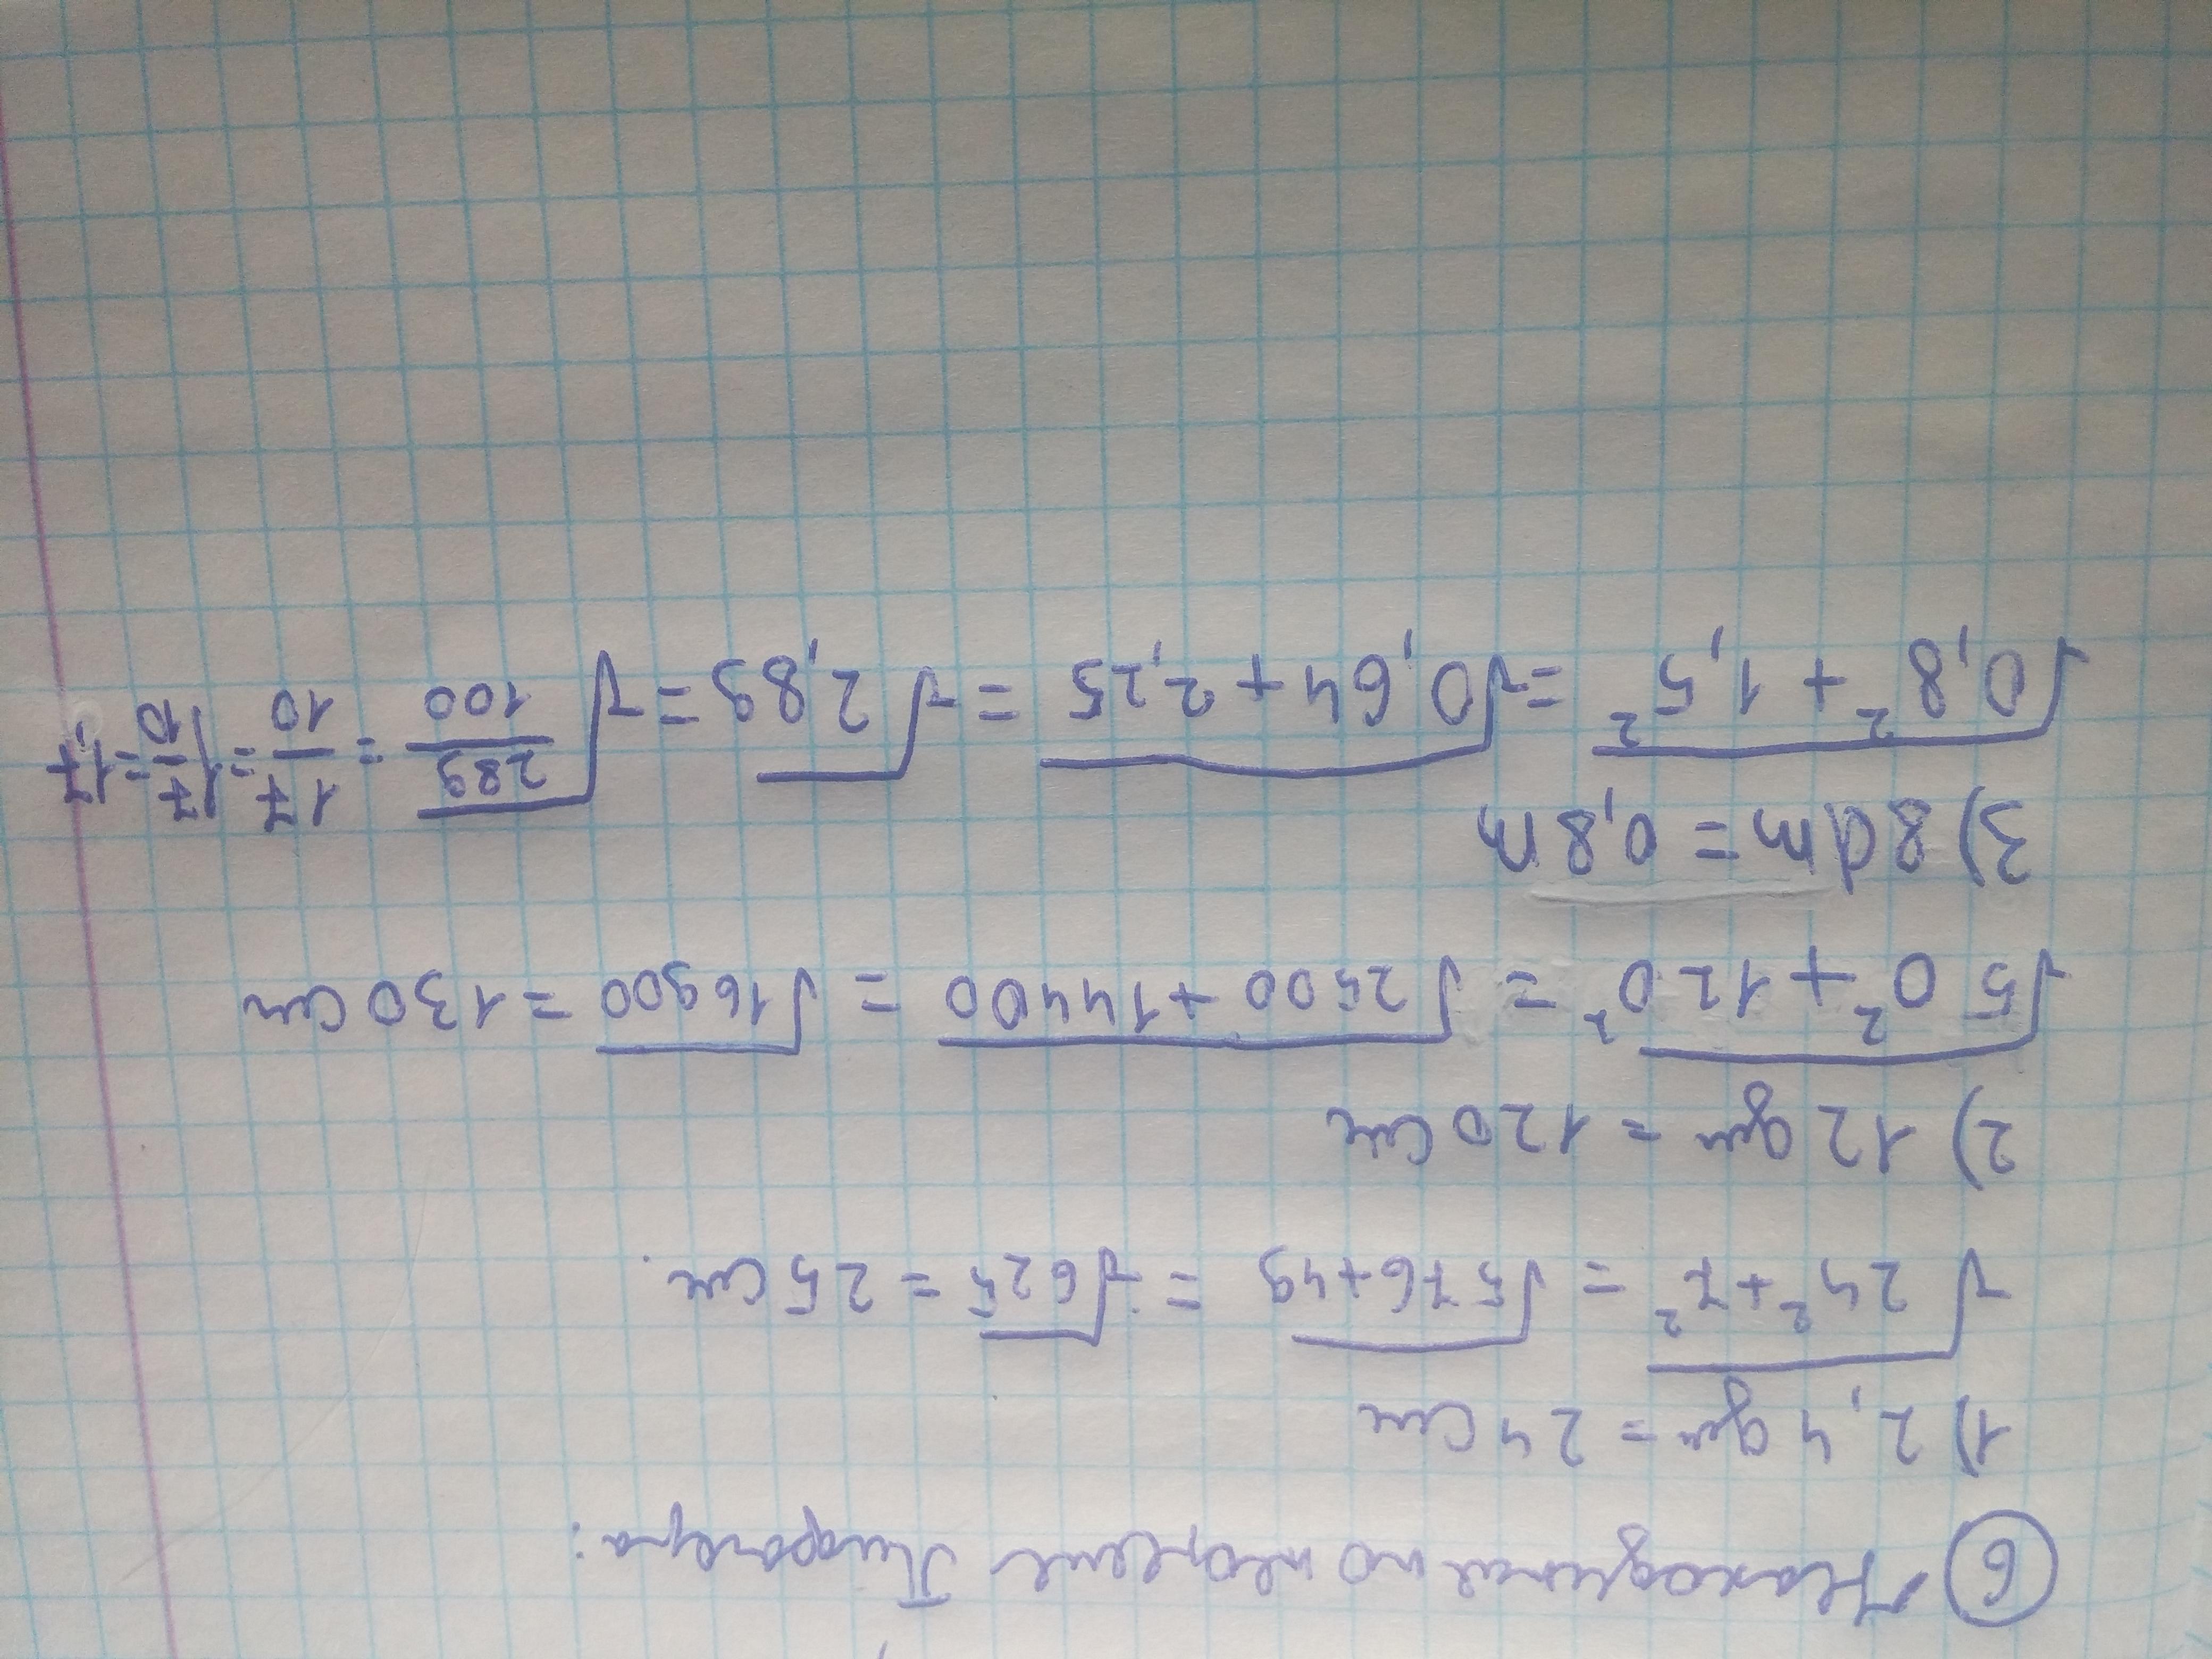 ⑥ Находим по теореме Пифагора:
1) 2,4 дм = 24 см
√24²+7² = √576+49 = √625 = 25 см.
2) 12 дм = 120 см
√50²+120² = √2500+14400 = √16900 = 130 см
3) 8 dm = 0,8 m
√0,8²+1,5² = √0,64+2,25 = √2,89 = √289/100 = 17/10 = 1 7/10 = 1,7